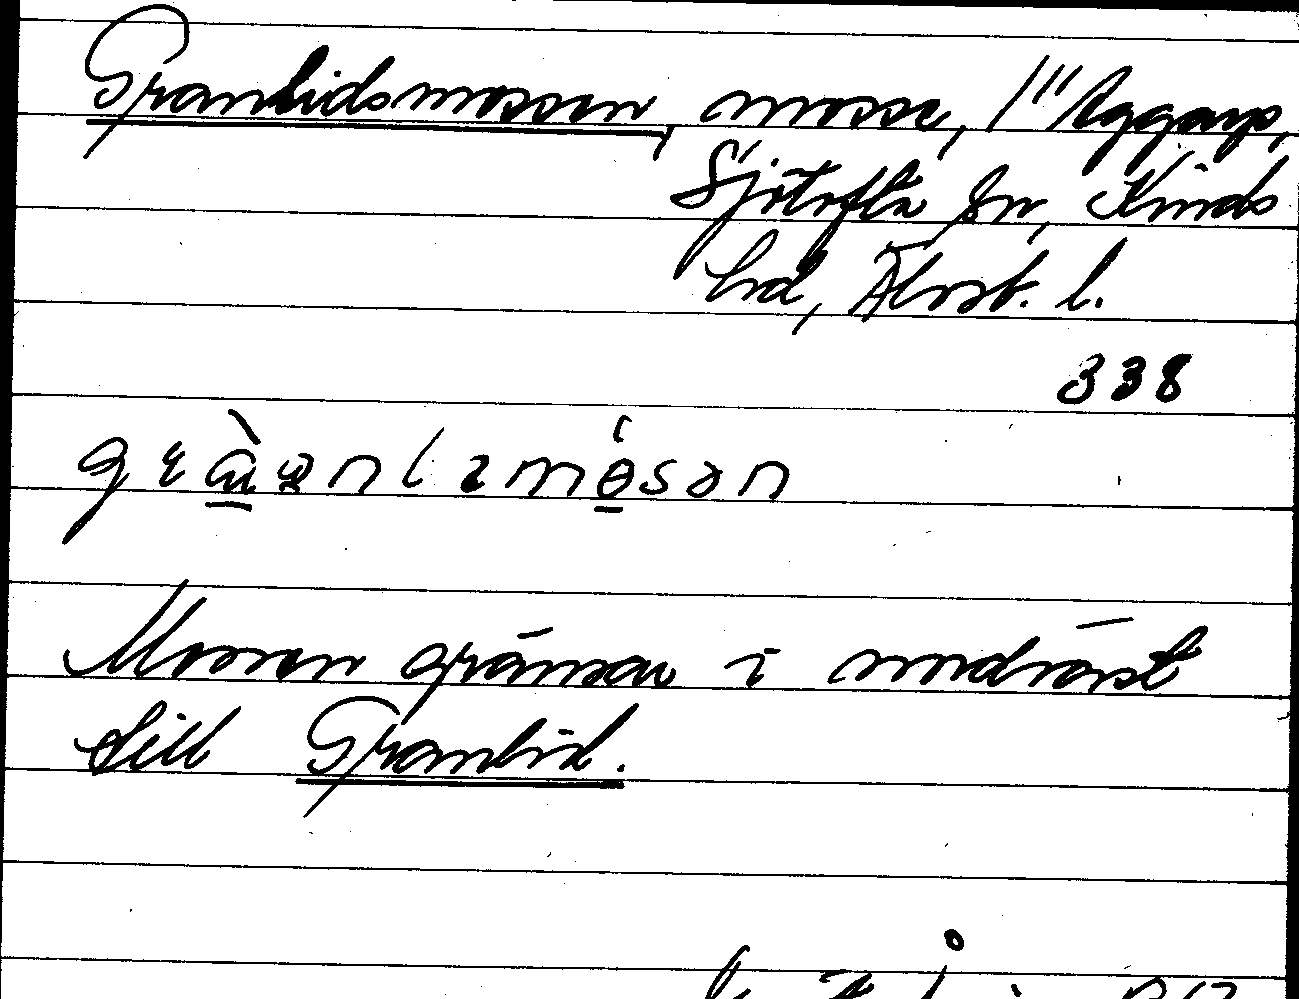 Granlidsmossen, mosse, 1/"Aggarp,
Sjötofta sn, Kinds
hd, Älvsb. l.
338
Mossen gränsar i nordväst
till Granlid.